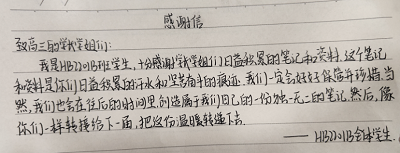 感谢信
致高三的学长学姐们:
我是HB2201B班学生,十分感谢学长学姐们日益积累的笔记和资料.这个笔记
和资料是你们日益积累的汗水和坚苦奋斗的痕迹.我们一定会好好保管并珍惜.当
然,我们也会在往后的时间里,创造属于我们自己的一份独一无二的笔记.然后,像
你们一样转接给下一届,把这份温暖转递下去.
——HB2201B全体学生.